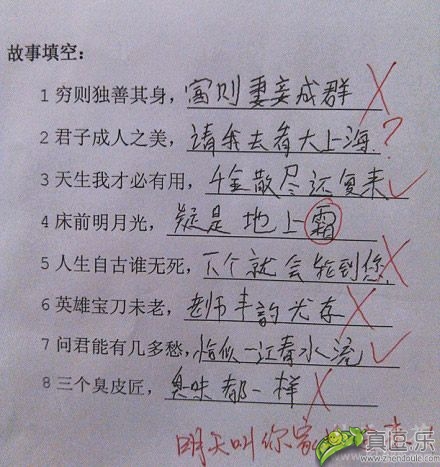 故事填空：
1 穷则独善其身，富则妻妾成群
2 君子成人之美，请我去看大上海.?
3 天生我才必有用，千金散尽还复来
4 床前明月光，疑是地上霜
5 人生自古谁无死，下个就会轮到您.
6 英雄宝刀未老，老师丰韵尤存
7 问君能有几多愁，恰似一江春水流
8 三个臭皮匠，臭味都一样
明天叫你家
真逗乐
www.zhendoule.com